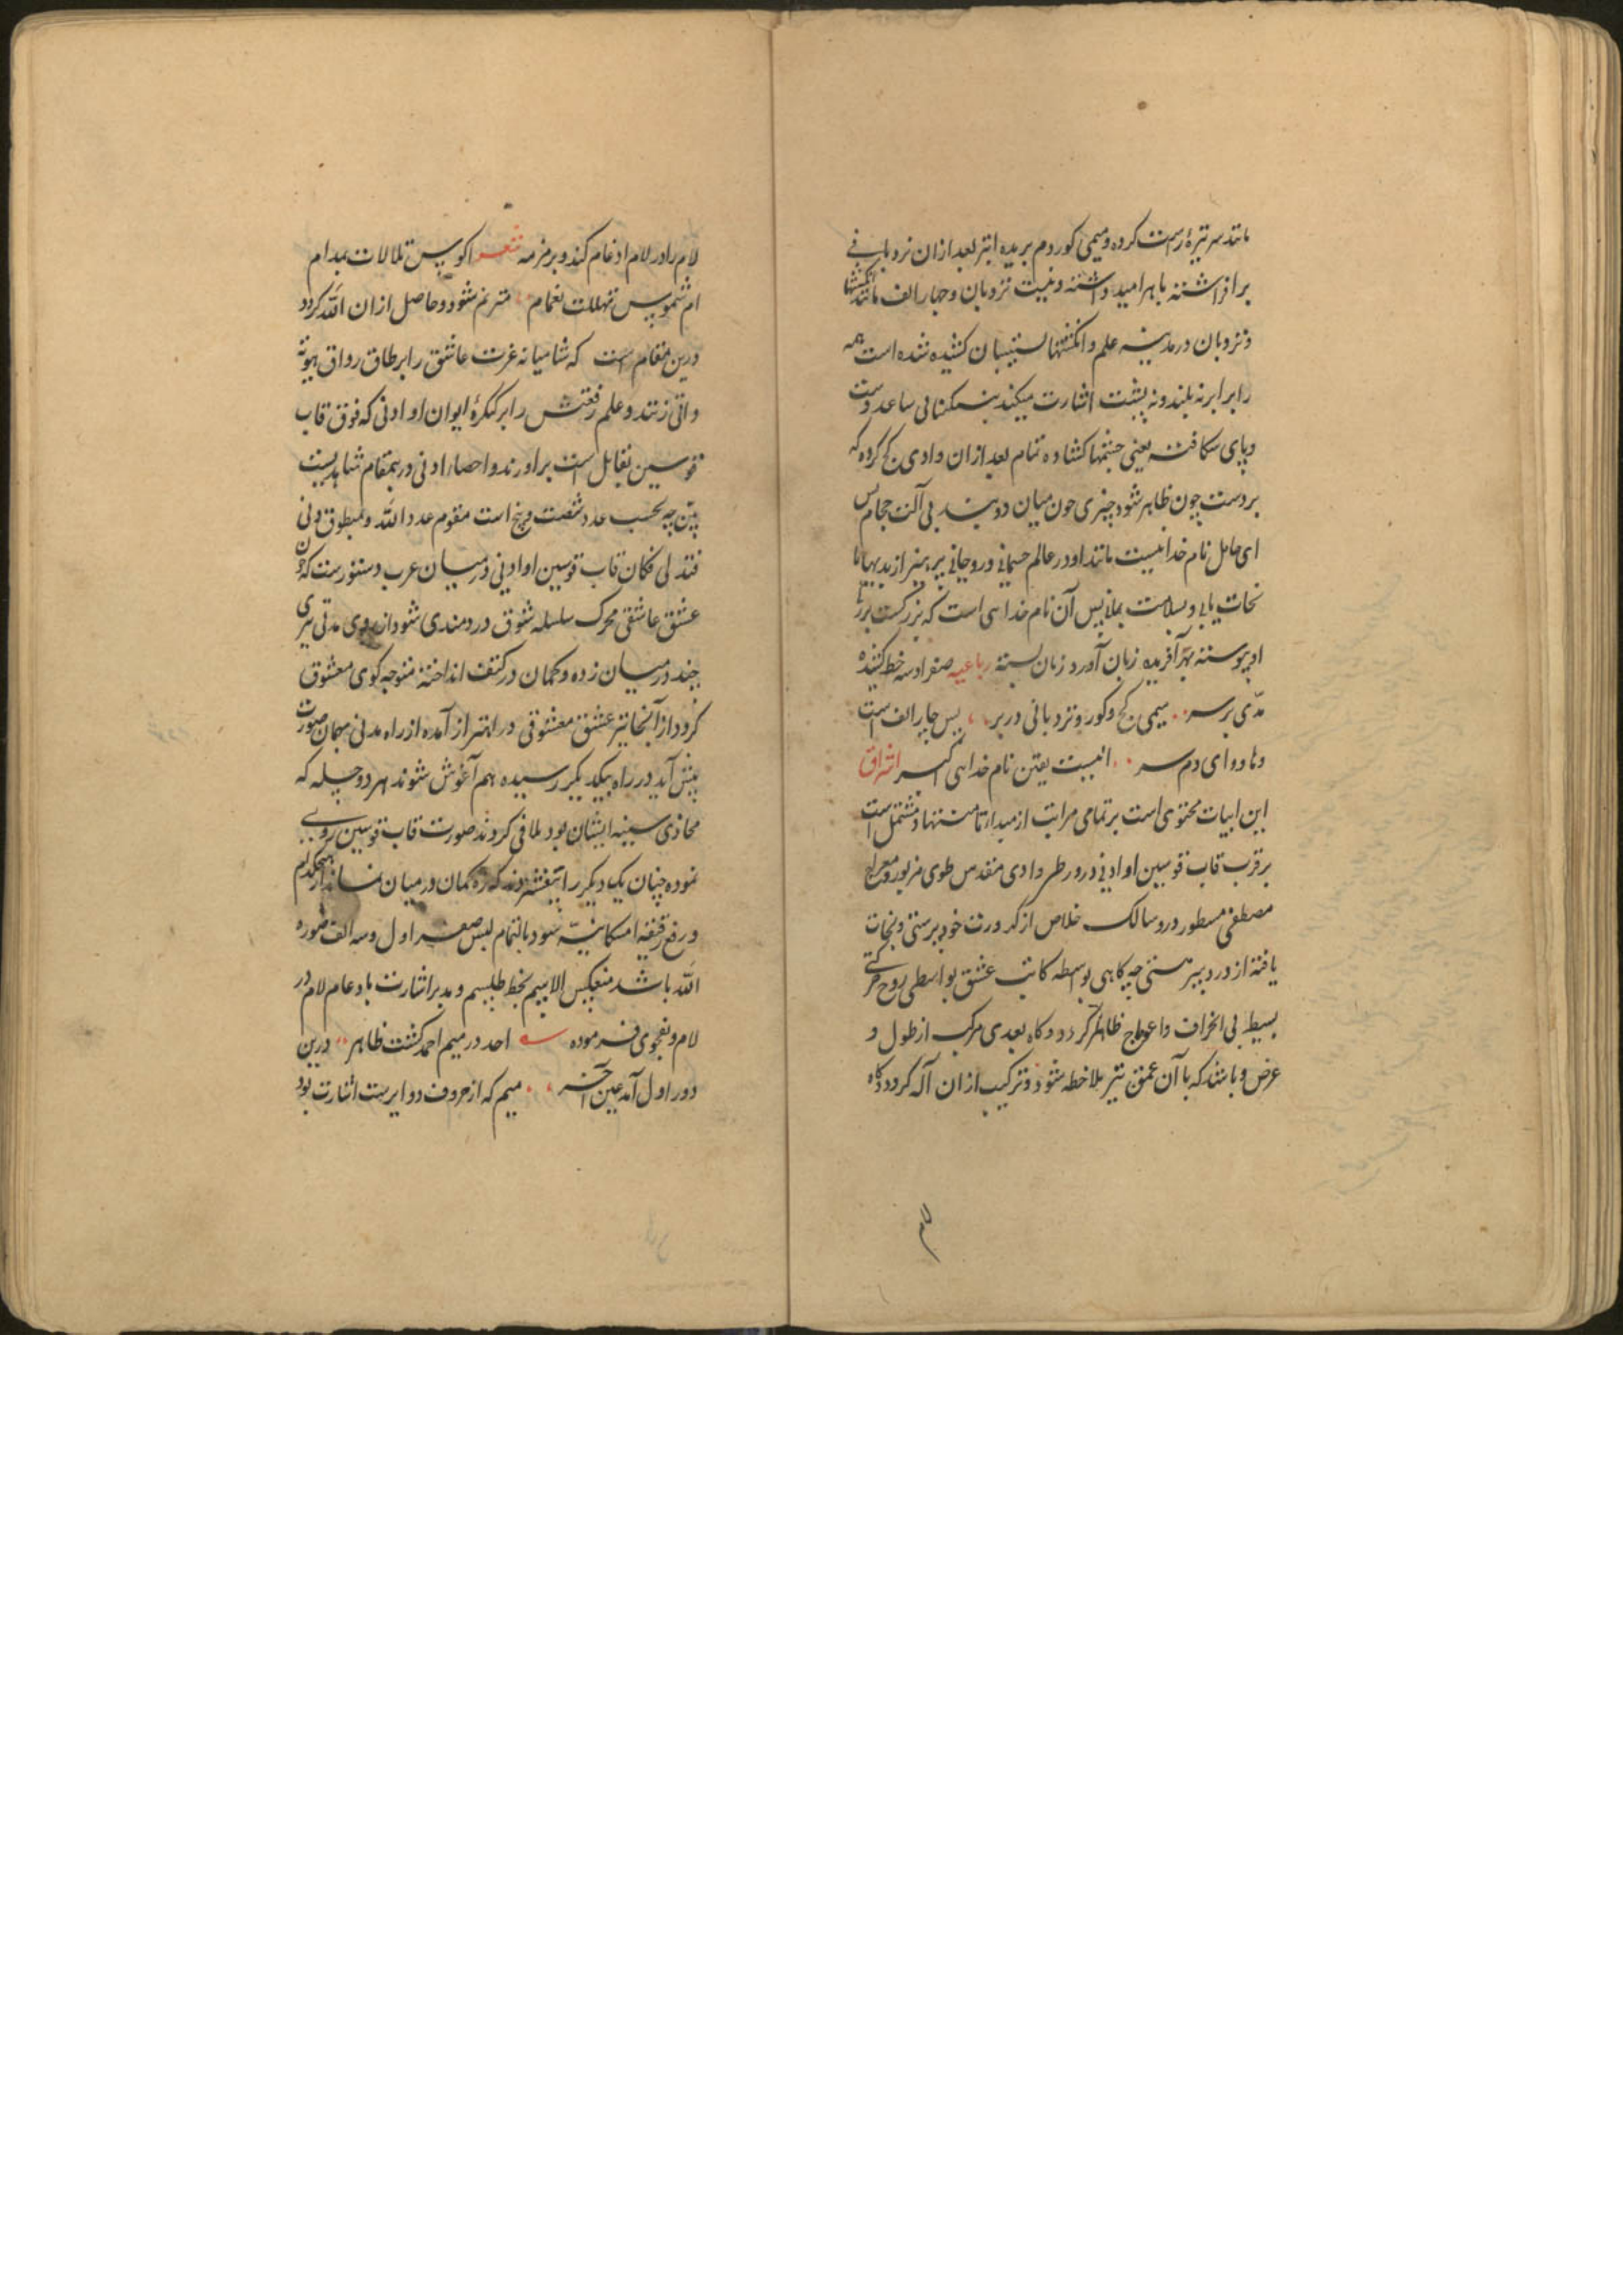 مانند سر تیزهٔ رسمت کرده و میمی کور دم بریده ابتر بعد ازان نردبانی
بر افراشته با هر امید داشته و نیست نزدبان و چهار الف مانند انکشتها
و نزدبان در مدینه علم و انکشتها پستیبان کشیده شده است همه
را برابر نه بلند و نه پست اشارت میکند بی ساعد دست
و پای شکافته یعنی چشمها کشاده تمام بعد ازان وادی کج کرده که
بر دست چون ظاهر شود چیزی چون میان دو بی آلت حجام پس
ای حامل نام خدا نیست مانند او در عالم جسمانی و روحانی بپرهیز از بدیها تا
نجات یابی و بسلامت بمانی پس آن نام خدایی است که بزرکست بزرک
او پیوسته بهر آفریده زبان آورد زبان بسته رباعیه صفر او سه خط کشیده
مدّی بر سر میمی کج و کور و نزدبانی در بر پس چار الف است
و ها و وای دم سر اینست یقین نام خدای اکبر اشراق
این ابیات محتوی است بر تمامی مراتب از مبدا تا منتها و مشتمل است
بر قرب قاب قوسین او ادنی در و رطر وادی مقدس طوی مزبور و معراج
مصطفی مسطور درو سالک خلاص از کدورت خود پرستی و نجات
یافته از درد پیر هستی چه کاهی بواسطه کاتب عشق بواسطی روح حرکتی
بسیط بی انحراف و اعوجاج ظاهر کردد و کاه بعدی مرکب از طول و
عرض و باشد که با آن عمق نیز ملاحظه شود و ترکیب ازان آله کردد و کاه
لام
لام را در لام ادغام کند و بر مزمه شعر اکوس تلالات بمدام
ام شموس تهللت بغمام مترنم شود و حاصل ازان الله کردد
درین مقام است که شامیانه عزت عاشق را بر طاق رواق هویة
ذاتی زنند و علم رفعتش را بر کنکرهٔ ایوان او ادنی که فوق قاب
قوسین تقابل است بر اورند و احصار ادنی در ینمقام شاهدیست
بین چه بحسب عدد شصت و پنج است مقوم عدد الله و منطوق دنی
فتدلی فکان قاب قوسین او ادنی در میان عرب دستورست که چون
عشق عاشقی محرک سلسله شوق دردمندی شود از روی مدتی تیری
چند در میان زده و کمان در کتف انداخته متوجه کوی معشوق
کردد از آنجا نیز عشق معشوقی در اهتزاز آمده از راه مدنی همان صورت
پیش آید در راه بیکدیکر رسیده هم آغوش شوند هر دو چله که
محاذی سینه ایشان بود ملاقی کردند صورت قاب قوسین روی
نموده چنان یکدیکر را بیفشرند که زه کمان در میان نماند از هیچکدام
و رفع رقیقه امکانیّه شود بالتمام پس صفر اول و سه الف صوره
الله باشد منعکس الا میم بخط طلسم و مد بر اشارت بادغام لام در
لام و بفحوی فرموده احد در میم احمد کشت ظاهر درین
دور اول آمد عین آخر میم که از حروف دوایرست اشارت بود